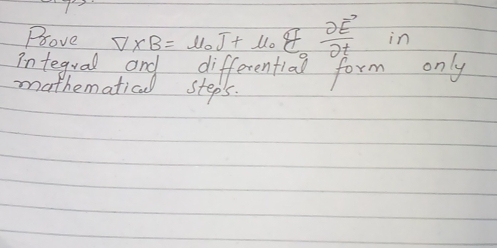 Prove ∇×B = μ₀ J + μ₀ ε₀ ∂E⃗/∂t in
integral and differential form only
mathematical steps.